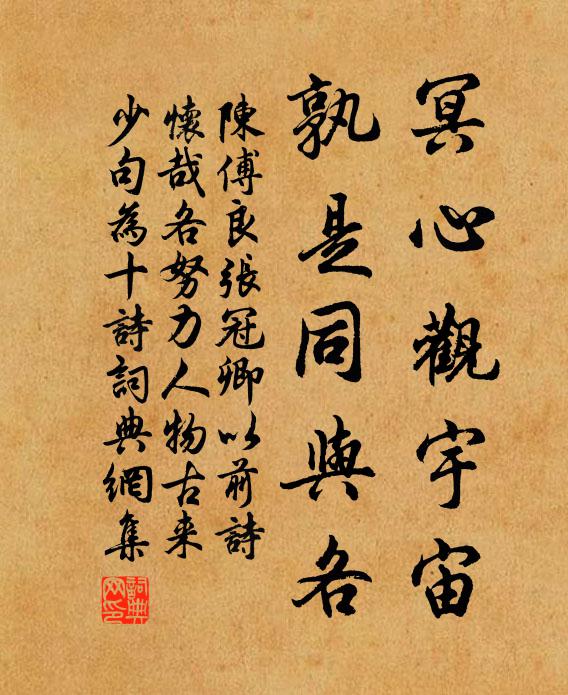 冥心觀宇宙
孰是同與各
陳傅良張冠卿以前詩
懷哉各努力人物古来
少句為十詩詞典網集
詞典网印